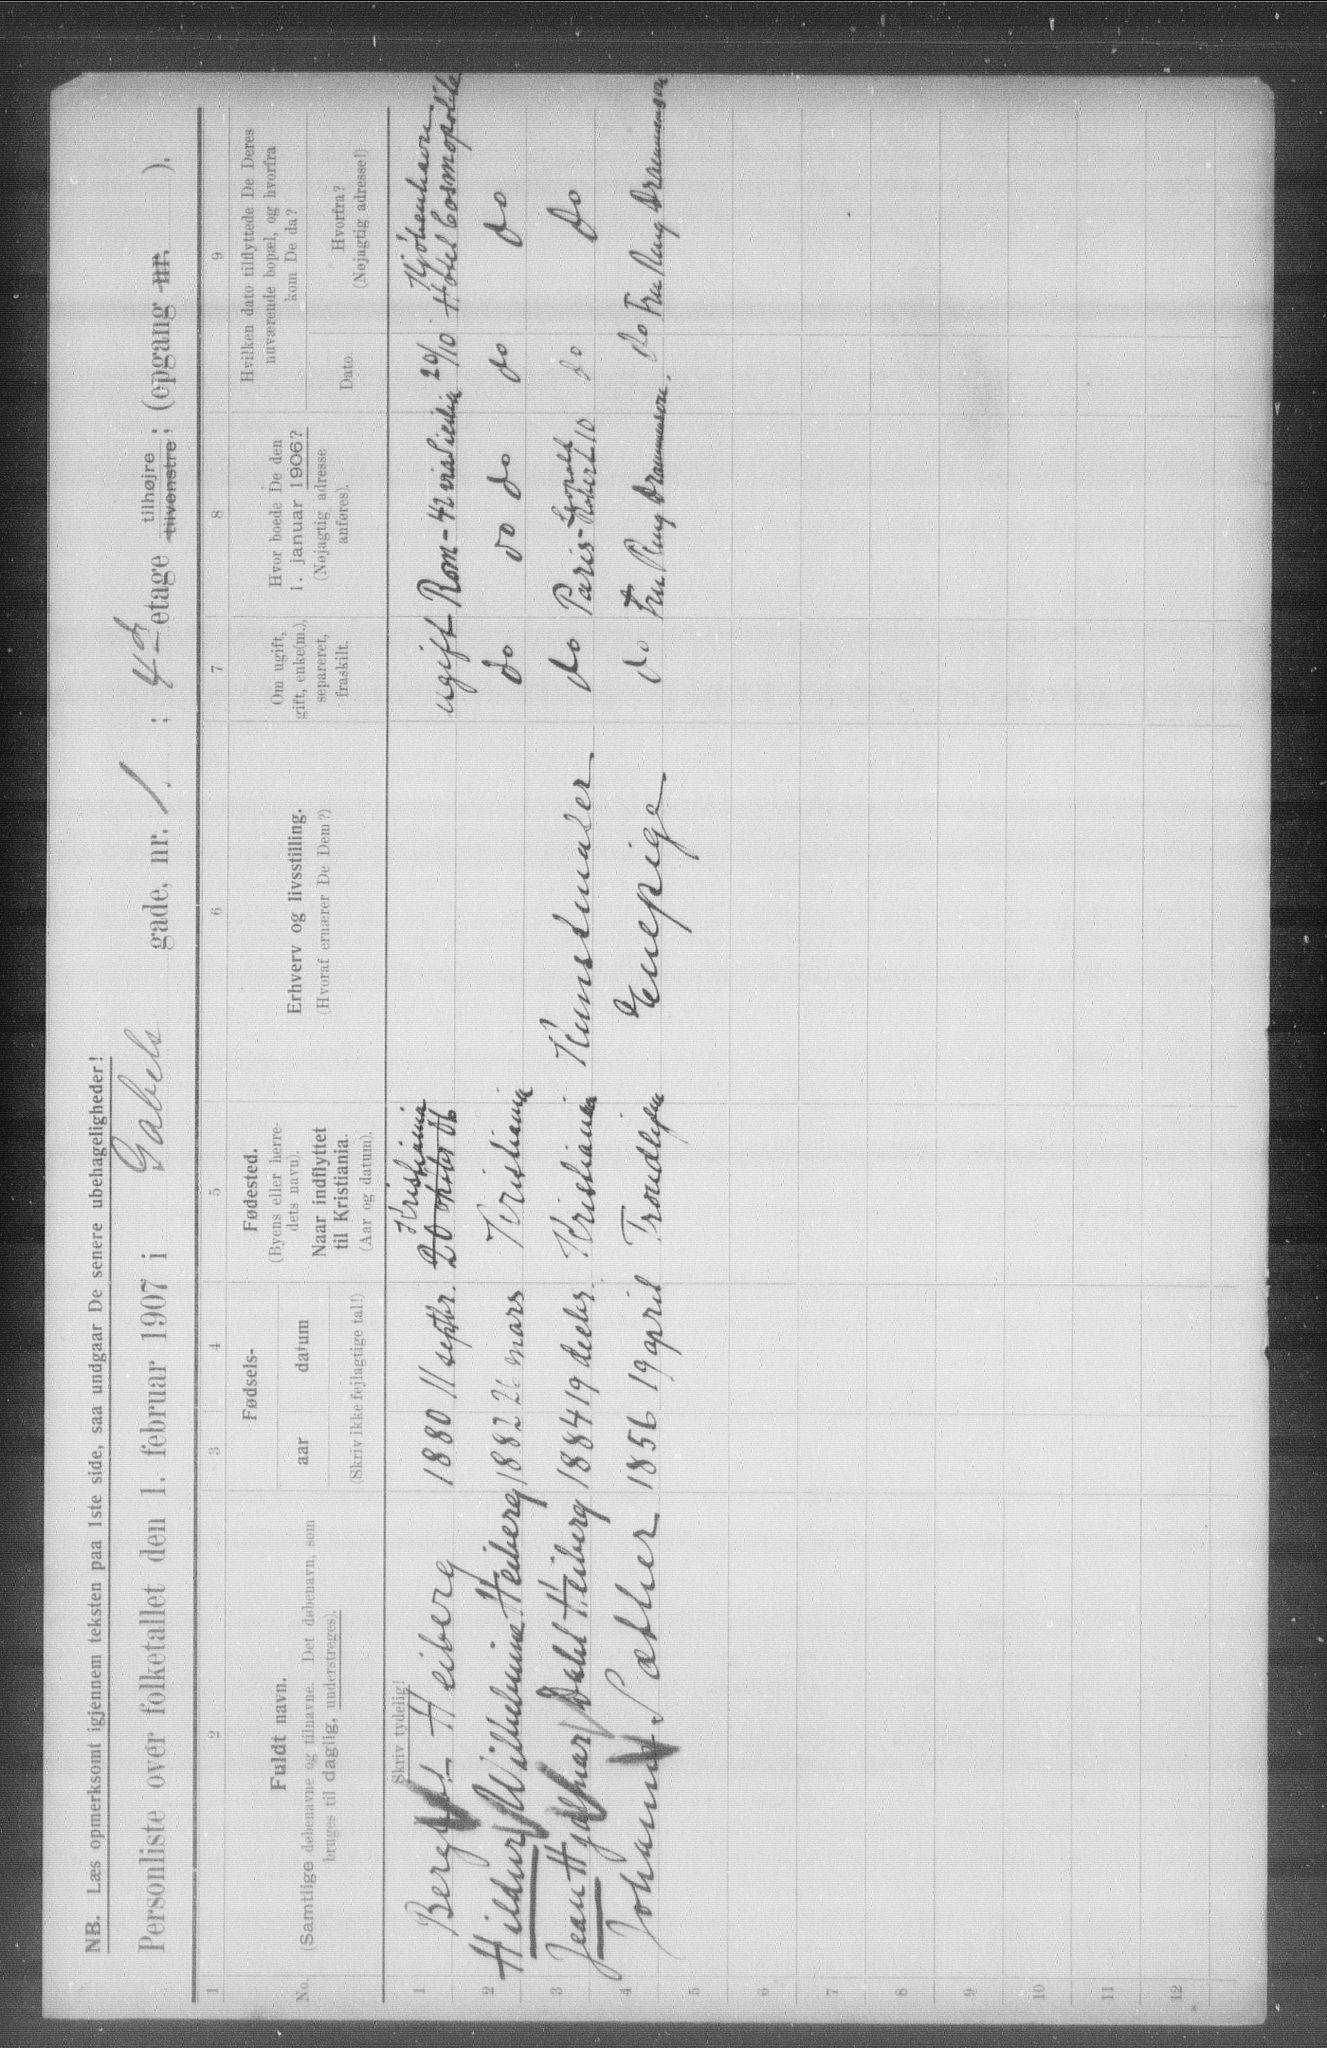 NB. Læs opmerksomt igjennem teksten paa 1ste side, saa undgaar De senere ubehageligheder!
Personliste over folketallet den 1. februar 1907 i Gabels gade, nr. 1. ; 4de etage tilhøjre tilvenstre; (opgang nr. ).
1 2 3 4 5 6 7 8 9
No.
Fuldt navn.
(Samtlige døbenavne og tilnavne. Det døbenavn, som
bruges til daglig, understreges).
Fødsels-
aar datum
(Skriv ikke fejlagtige tal!)
Fødested.
(Byens eller herre-
dets navn).
Naar indflyttet
til Kristiania.
(Aar og datum).
Erhverv og livsstilling.
(Hvoraf ernærer De Dem?)
Om ugift,
gift, enke(m.),
separeret,
fraskilt.
Hvor boede De den
1. januar 1906?
(Nøjagtig adresse
anføres).
Hvilken dato tilflyttede De Deres
nuværende bopæl, og hvorfra
kom De da?
Dato
Hvorfra?
(Nøjagtig adresse!)
Skriv tydelig!
Kristiania Kjöbenhavn
1 Heiberg 1880 11 septbr. 20 oktobr 06 ugift Rom - 42 via Sicilia 20/10 Hotel Cosmopolite
2 Hildur Wilhelmine Heiberg 1882 mars Kristiania do do do do do
3 Jean Hjalmar Dahl Heiberg 1884 19 decbr. Kristiania Kunstmaler do Paris - Leopold Robert 10 do do
4 Sæther 1856 19 april Trondhjem Enepige do Fru Ring Drammensvn. do Fru Ring Drammensvn
5
6
7
8
9
10
11
12